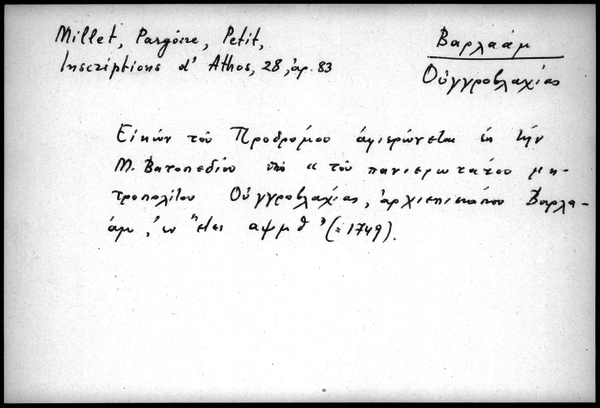 Millet, Pargoire, Petit,
Inscriptions d' Athos, 28, ἀρ. 83
Βαρλαάμ
Οὑγγροβλαχίας
Εἰκών τοῦ Προδρόμου ἀφιερώνεται εἰς τήν
Μ. Βατοπεδίου ὑπό "τοῦ πανιερωτάτου μη-
τροπολίτου Οὑγγροβλαχίας, ἀρχιεπισκόπου Βαρλα-
άμ, ἐν ἔτει αψμθ" (=1749).